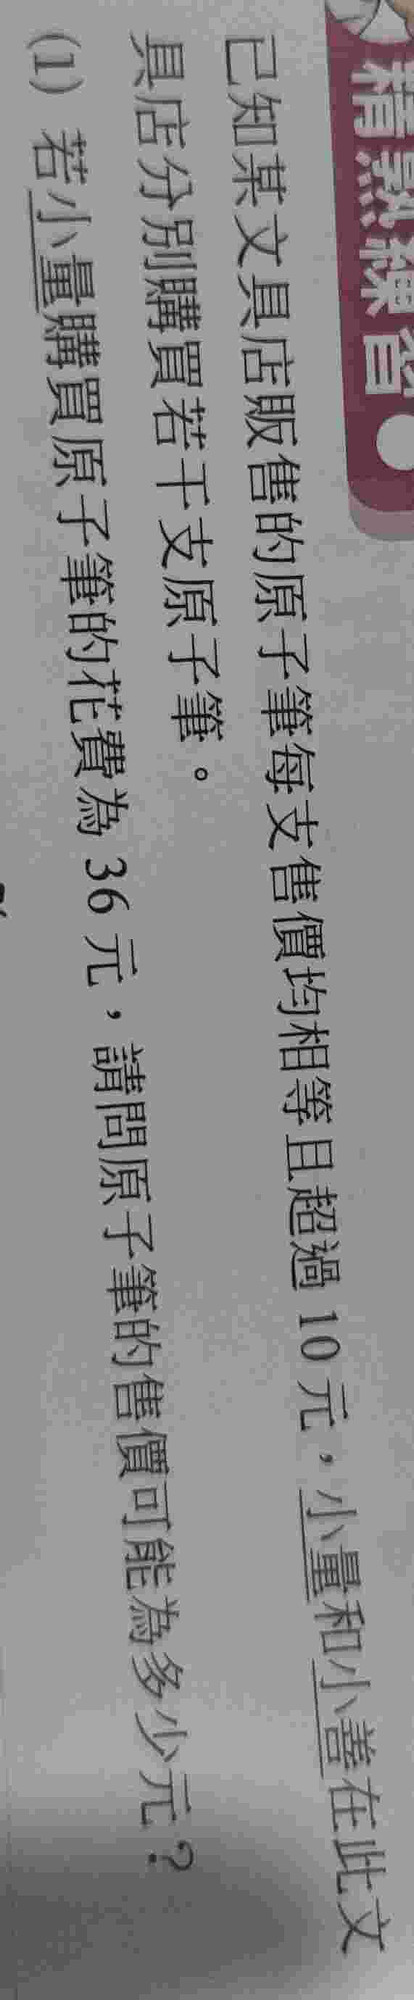 精熟練習
已知某文具店販售的原子筆每支售價均相等且超過 10 元，小量和小善在此文
具店分別購買若干支原子筆。
(1) 若小量購買原子筆的花費為 36 元，請問原子筆的售價可能為多少元？